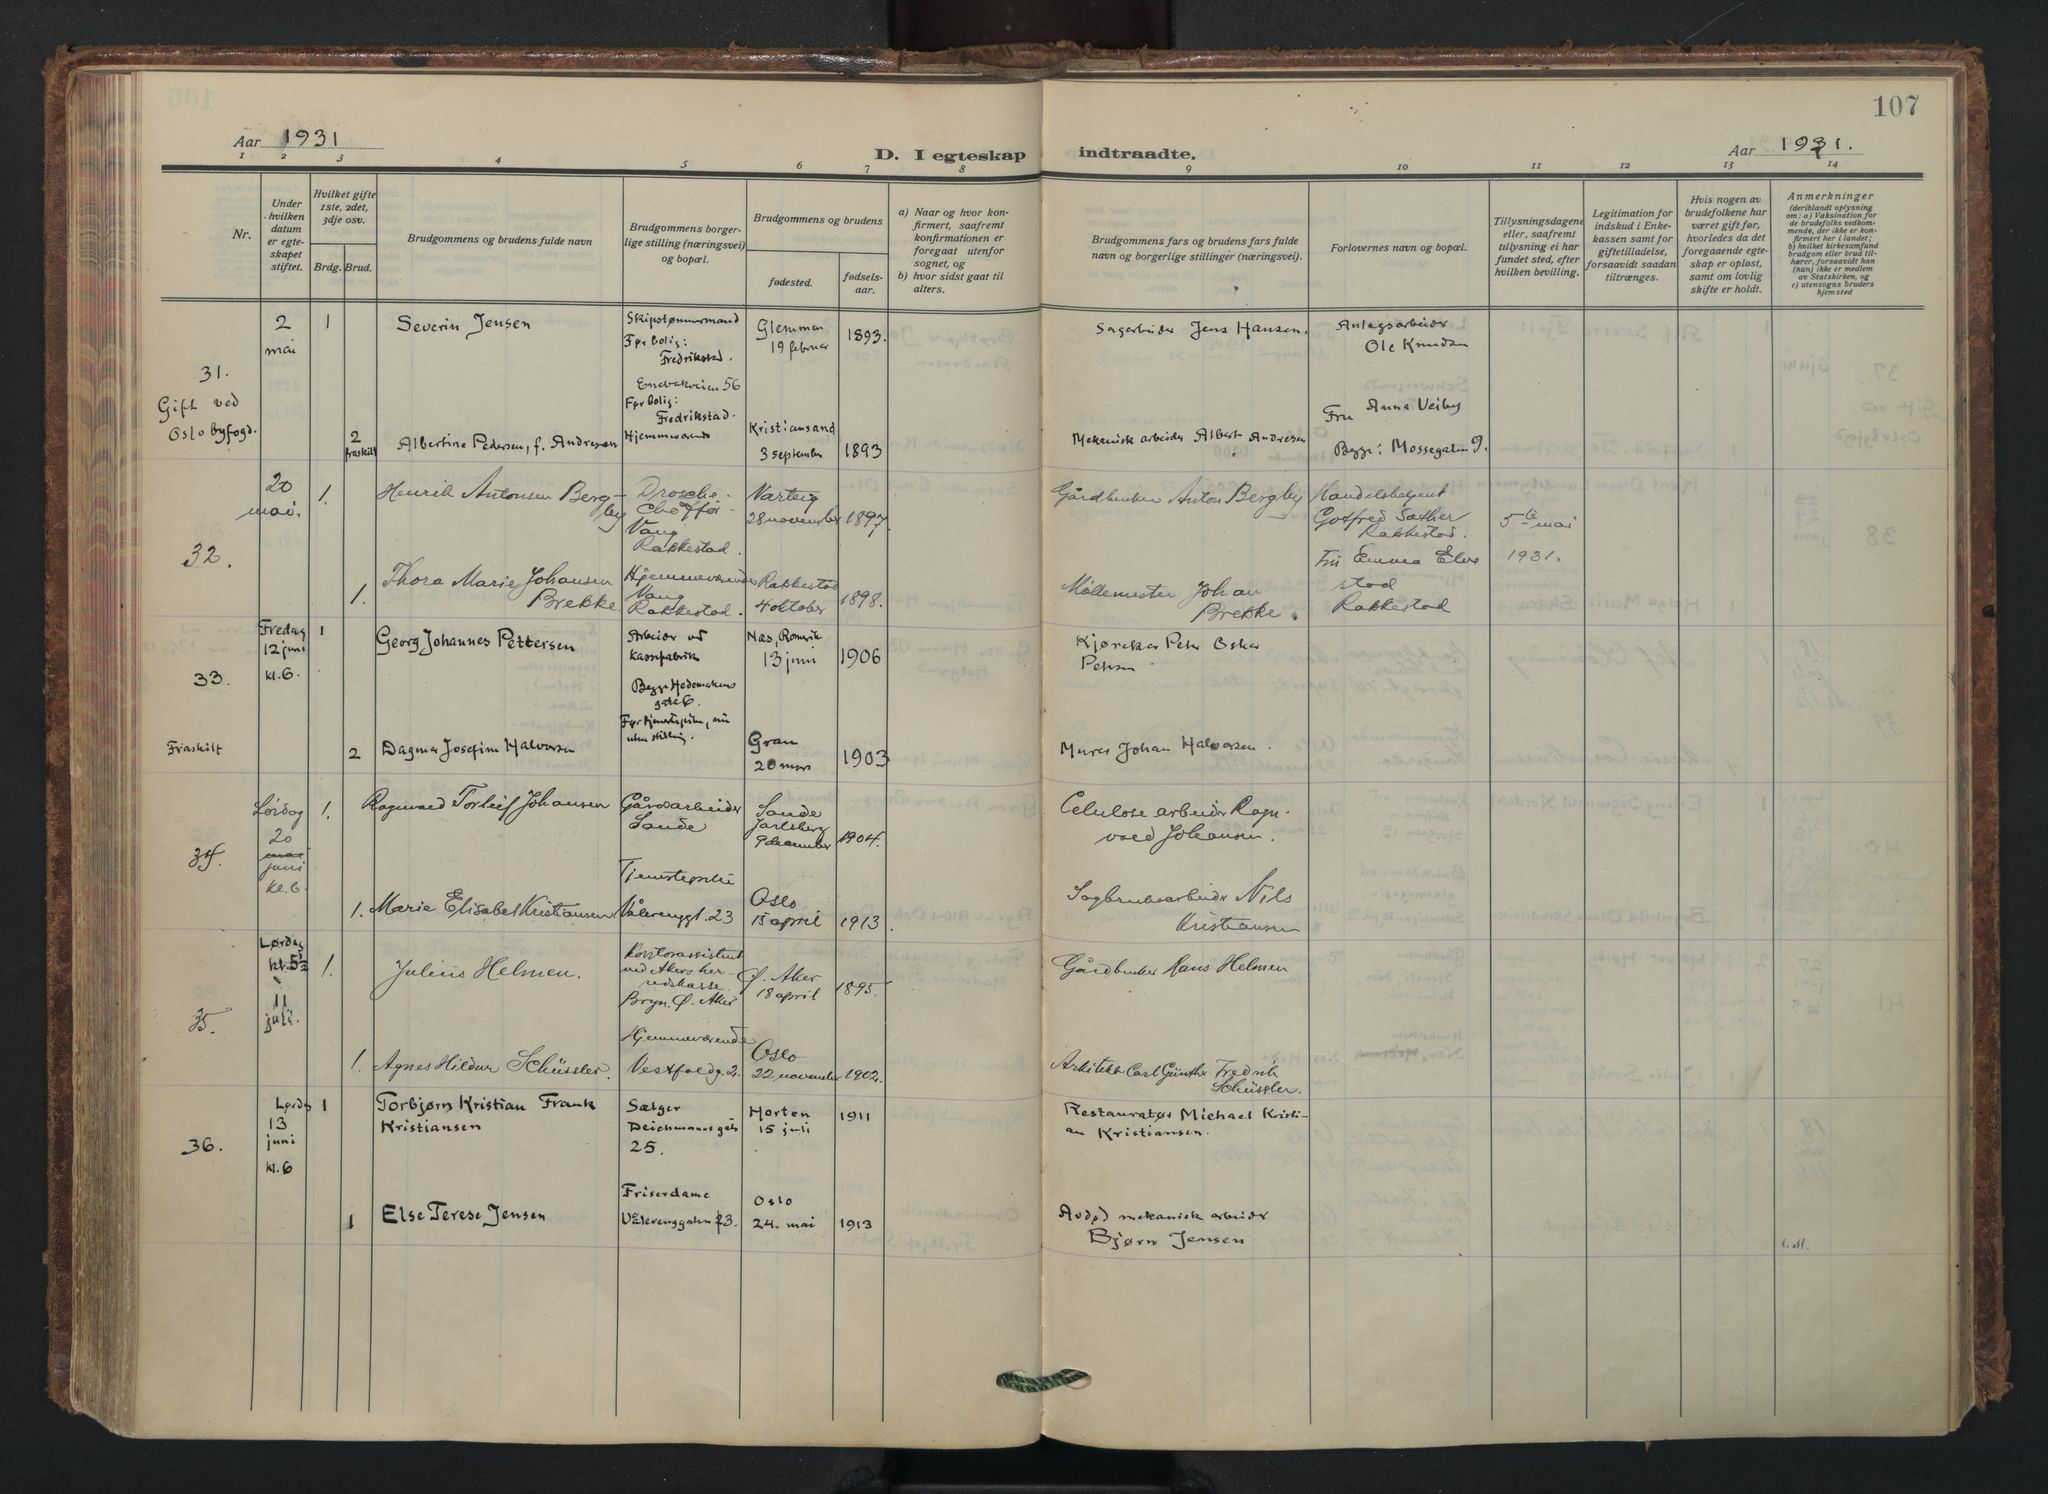 107
Aar 1931
D. I egteskap indtraadte.
Aar 1931.
1 2 3 4 5 6 7 8 9 10 11 12 13 14
Nr.
Under
hvilken
datum
er egte-
skapet
stiftet.
Hvilket gifte
1ste, 2det,
3dje osv.
Brdg. Brud.
Brudgommens og brudens fulde navn
Brudgommens borger-
lige stilling (næringsvei)
og bopæl.
Brudgommens og brudens
fødested.
fødsels-
aar.
a) Naar og hvor kon-
firmert, saafremt
konfirmationen er
foregaat utenfor
sognet, og
b) hvor sidst gaat til
alters.
Brudgommens fars og brudens fars fulde
navn og borgerlige stillinger (næringsvei).
Forlovernes navn og bopæl.
Tillysningsdagene
eller, saafremt
tillysning ei har
fundet sted, efter
hvilken bevilling.
Legitimation for
indskud i Enke-
kassen samt for
giftetilladelse,
forsaavidt saadan
tiltrænges.
Hvis nogen av
brudefolkene har
været gift før,
hvorledes da det
foregaaende egte-
skap er opløst,
samt om lovlig
skifte er holdt.
Anmerkninger
(deriblandt oplysning
om: a) Vaksination for
de brudefolks vedkom-
mende, der ikke er kon-
firmert her i landet;
b) hvilket kirkesamfund
brudgom eller brud til-
hører, forsaavidt han
(hun) ikke er medlem
av Statskirken, og
c) utensogns bruders
hjemsted
31.
Gift ved
Oslo byfogd.
2
mai
1
Severin Jensen
Skipstømmermand
Før bolig:
Fredrikstad.
Glemmen
19 februar
1893.
Sagarbeider Jens Hansen.
Anlegsarbeider
Ole Knudsen
2
fraskilt
Albertine Pedersen, f. Andresen
Enebakveien 56
Før bolig:
Fredrikstad.
Hjemmevärende
Kristiansand
3 september
1893
Mekanisk arbeider Albert Andresen
Fru Anna Veiby
Begge: Mossegaten 9.
32.
20
mai.
1.
Henrik Antonsen Berg-
by
Drosche-
chøffør
Vang
Rakkestad.
Varteig
28 november
1897.
Gårdbruker Anton Bergby
Handelsbetjent
Gotfred Sæther
Rakkestad.
5te mai
1931.
1.
Thora Marie Johansen
Brekke.
Hjemmeværende
Vang
Rakkestad.
Rakkestad
4 oktober
1898.
Møllemester Johan
Brekke.
Fru Emma Elve
stad
Rakkestad
33.
Fredag
12 juni
kl. 6.
1
Georg Johannes Pettersen
Arbeider ved
kassefabrik
Begge Hedemarkens
gate 6.
Næs, Romerik
13 juni
1906
Kjørekar Peter Oskar
Petersen
Fraskilt
2
Dagmar Josefine Halvorsen
Før tjenestepike, nu
uten stilling.
Gran
20 mars
1903
Murer Johan Halvorsen.
34.
Lørdag
20
mai
juni
kl. 6.
1.
Ragnvald Torleif Johansen
Gårdsarbeider
Sande
Sande
Jarlsberg
9 december
1904.
Celulose arbeider Ragn-
vald Johansen.
1.
Marie Elisabet Kristiansen
Tjenestepike
Vålerenggt. 23
Oslo
15 april
1913
Sagbruksarbeider Nils
Kristiansen
35.
Lørdag
kl. 5½
11
juli.
1.
Julius Helmen.
Kontorassistent
ved Akers her-
redskasse
Bryn Ø. Aker
Ø. Aker
18 april
1895.
Gårdbruker Hans Helmen
1.
Agnes Hildur Schüssler.
Hjemmeværende
Vestfoldg. 2.
Oslo
22 november
1902.
Arkitekt Carl Günther Fredrik
Schüssler.
36.
Lørdag
13
juni
kl. 6
1
Torbjørn Kristian Frank
Kristiansen
Sælger
Deichmannsgate
25.
Horten
15 juli
1911
Restauratør Michael Kristi-
an Kristiansen.
1
Else Terese Jensen
Friserdame
Vålerenggaten 23.
Oslo
24. mai
1913
Avdød mekanisk arbeider
Bjørn Jensen